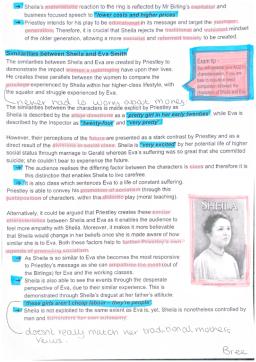 Sheila's materialistic reaction to the ring is reflected by Mr Birling's capitalist and
business focused speech to "lower costs and higher prices"
Priestley intends for his play to be educational in its message and target the younger
generation. Therefore, it is crucial that Sheila rejects the traditional and
of the older generation, allowing a more socialist and reformed society to be created.
Similarities between Sheila and Eva Smith
The similarities between Sheila and Eva are created by Priestley to
demonstrate the impact upon their lives.
He creates these parallels between the two women to compare the
privilege experienced by Sheila within her higher-class lifestyle, with
the squalor and struggle experienced by Eva.
never had to worry about money
Exam tip -
The similarities between the characters is made explicit by Priestley as
Sheila is described by the stage directions as "pretty girl in her early twenties" while Eva is
described by the Inspector as "twenty-four" and "very pretty"
However, their perceptions of the future are presented as a stark contrast by Priestley and as a
direct result of the in social class. Sheila is "very excited" by her potential of higher
social status through marriage to Gerald whereas Eva's suffering was so great that she committed
suicide; she couldn't bear to experience the future.
The audience realises the differing factor between the characters is class and therefore it is
this distinction that enables Sheila to live carefree.
It is also class which sentences Eva to a life of constant suffering.
Priestley is able to convey his promotion of socialism through this
juxtaposition of characters, within this didactic play (moral teaching).
Alternatively, it could be argued that Priestley creates these similar
characteristics between Sheila and Eva as it enables the audience to
feel more empathy with Sheila. Moreover, it makes it more believable
that Sheila would change in her beliefs once she is made aware of how
similar she is to Eva. Both these factors help to further Priestley's own
agenda of promoting socialism.
As Sheila is so similar to Eva she becomes the most responsive
to Priestley's message as she can empathise the most(out of
the Birlings) for Eva and the working classes.
Sheila is also able to see the events through the desperate
perspective of Eva, due to their similar experience. This is
demonstrated through Sheila's disgust at her father's attitude:
"these girls aren't cheap labour – they're people"
Sheila is not exploited in the same sense as Eva is, yet, Sheila is nonetheless controlled by
men and
SHEILA
doesn't really match her traditional mothers
views.
Bree